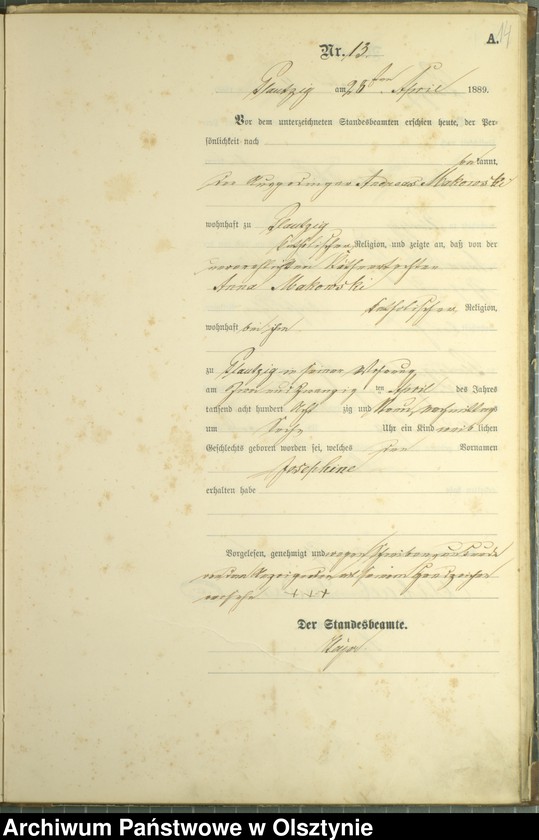 A. 14
Nr. 13
Plautzig am 23ten April 1889.
Vor dem unterzeichneten Standesbeamten erschien heute, der Per-
sönlichkeit nach
bekannt,
der Andreas Makowski
wohnhaft zu Plautzig
katholischer Religion, und zeigte an, daß von der
unverehelichten
Anna Makowski
katholischer Religion,
wohnhaft bei ihm
zu Plautzig in seiner Wohnung
am zwei und zwanzig ten April des Jahres
tausend acht hundert Acht zig und Neun, Vormittags
um Sechs Uhr ein Kind weiblichen
Geschlechts geboren worden sei, welches den Vornamen
Josephine
erhalten habe
Vorgelesen, genehmigt und wegen
seinem Handzeichen
versehen +++
Der Standesbeamte.
Archiwum Państwowe w Olsztynie